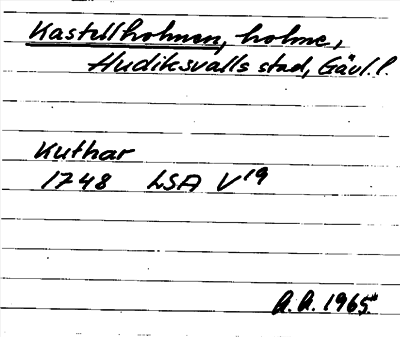 Kastellholmen, holme,
Hudiksvalls stad, Gävl. l.
Kuthar
1748 LSA V19
A. A. 1965